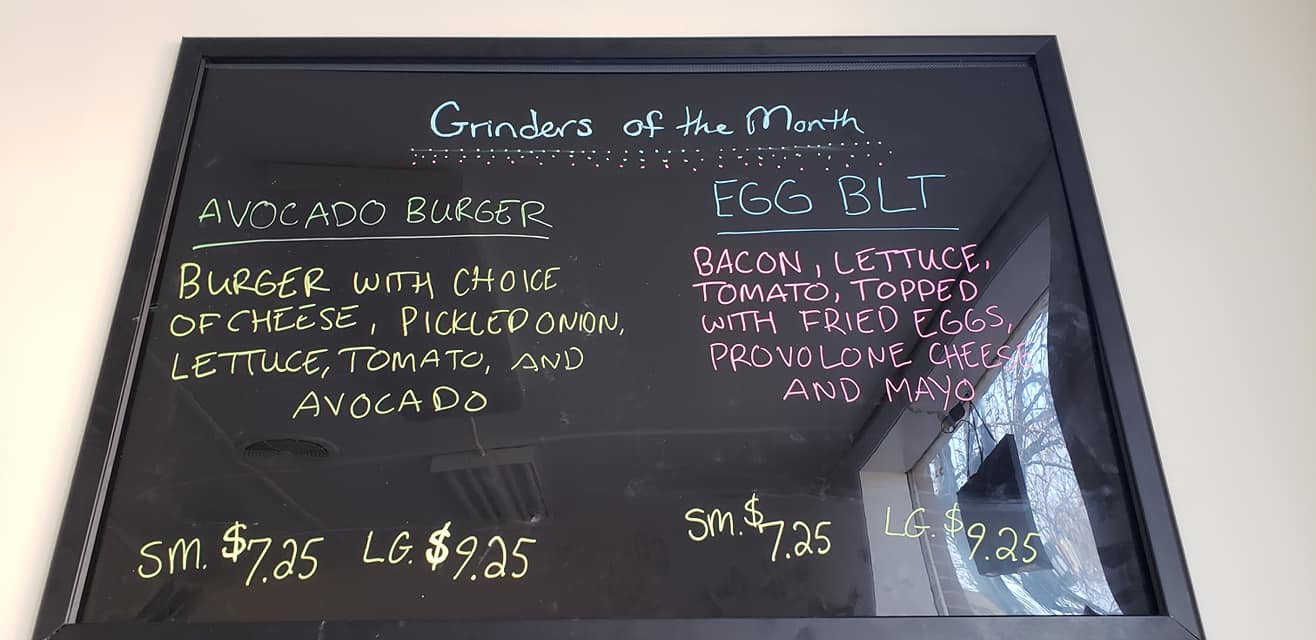 Grinders of the Month
AVOCADO BURGER
BURGER WITH CHOICE
OF CHEESE, PICKLED ONION,
LETTUCE, TOMATO, AND
AVOCADO
SM. $7.25 LG. $9.25
EGG BLT
BACON, LETTUCE,
TOMATO, TOPPED
WITH FRIED EGGS,
PROVOLONE CHEESE
AND MAYO
SM. $7.25 LG. $9.25